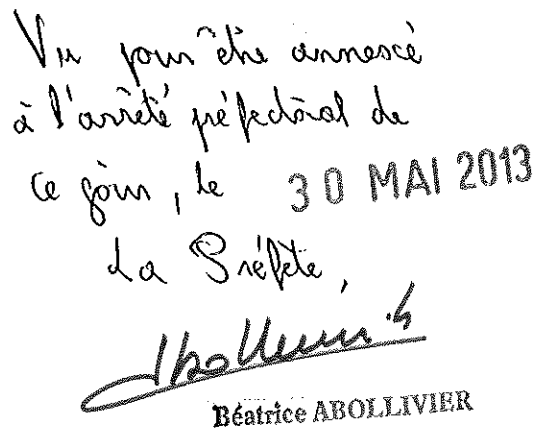 Vu pour être annexé
à l'arrêté préfectoral de
ce jour, le 30 MAI 2013
La Préfète,
Béatrice ABOLLIVIER